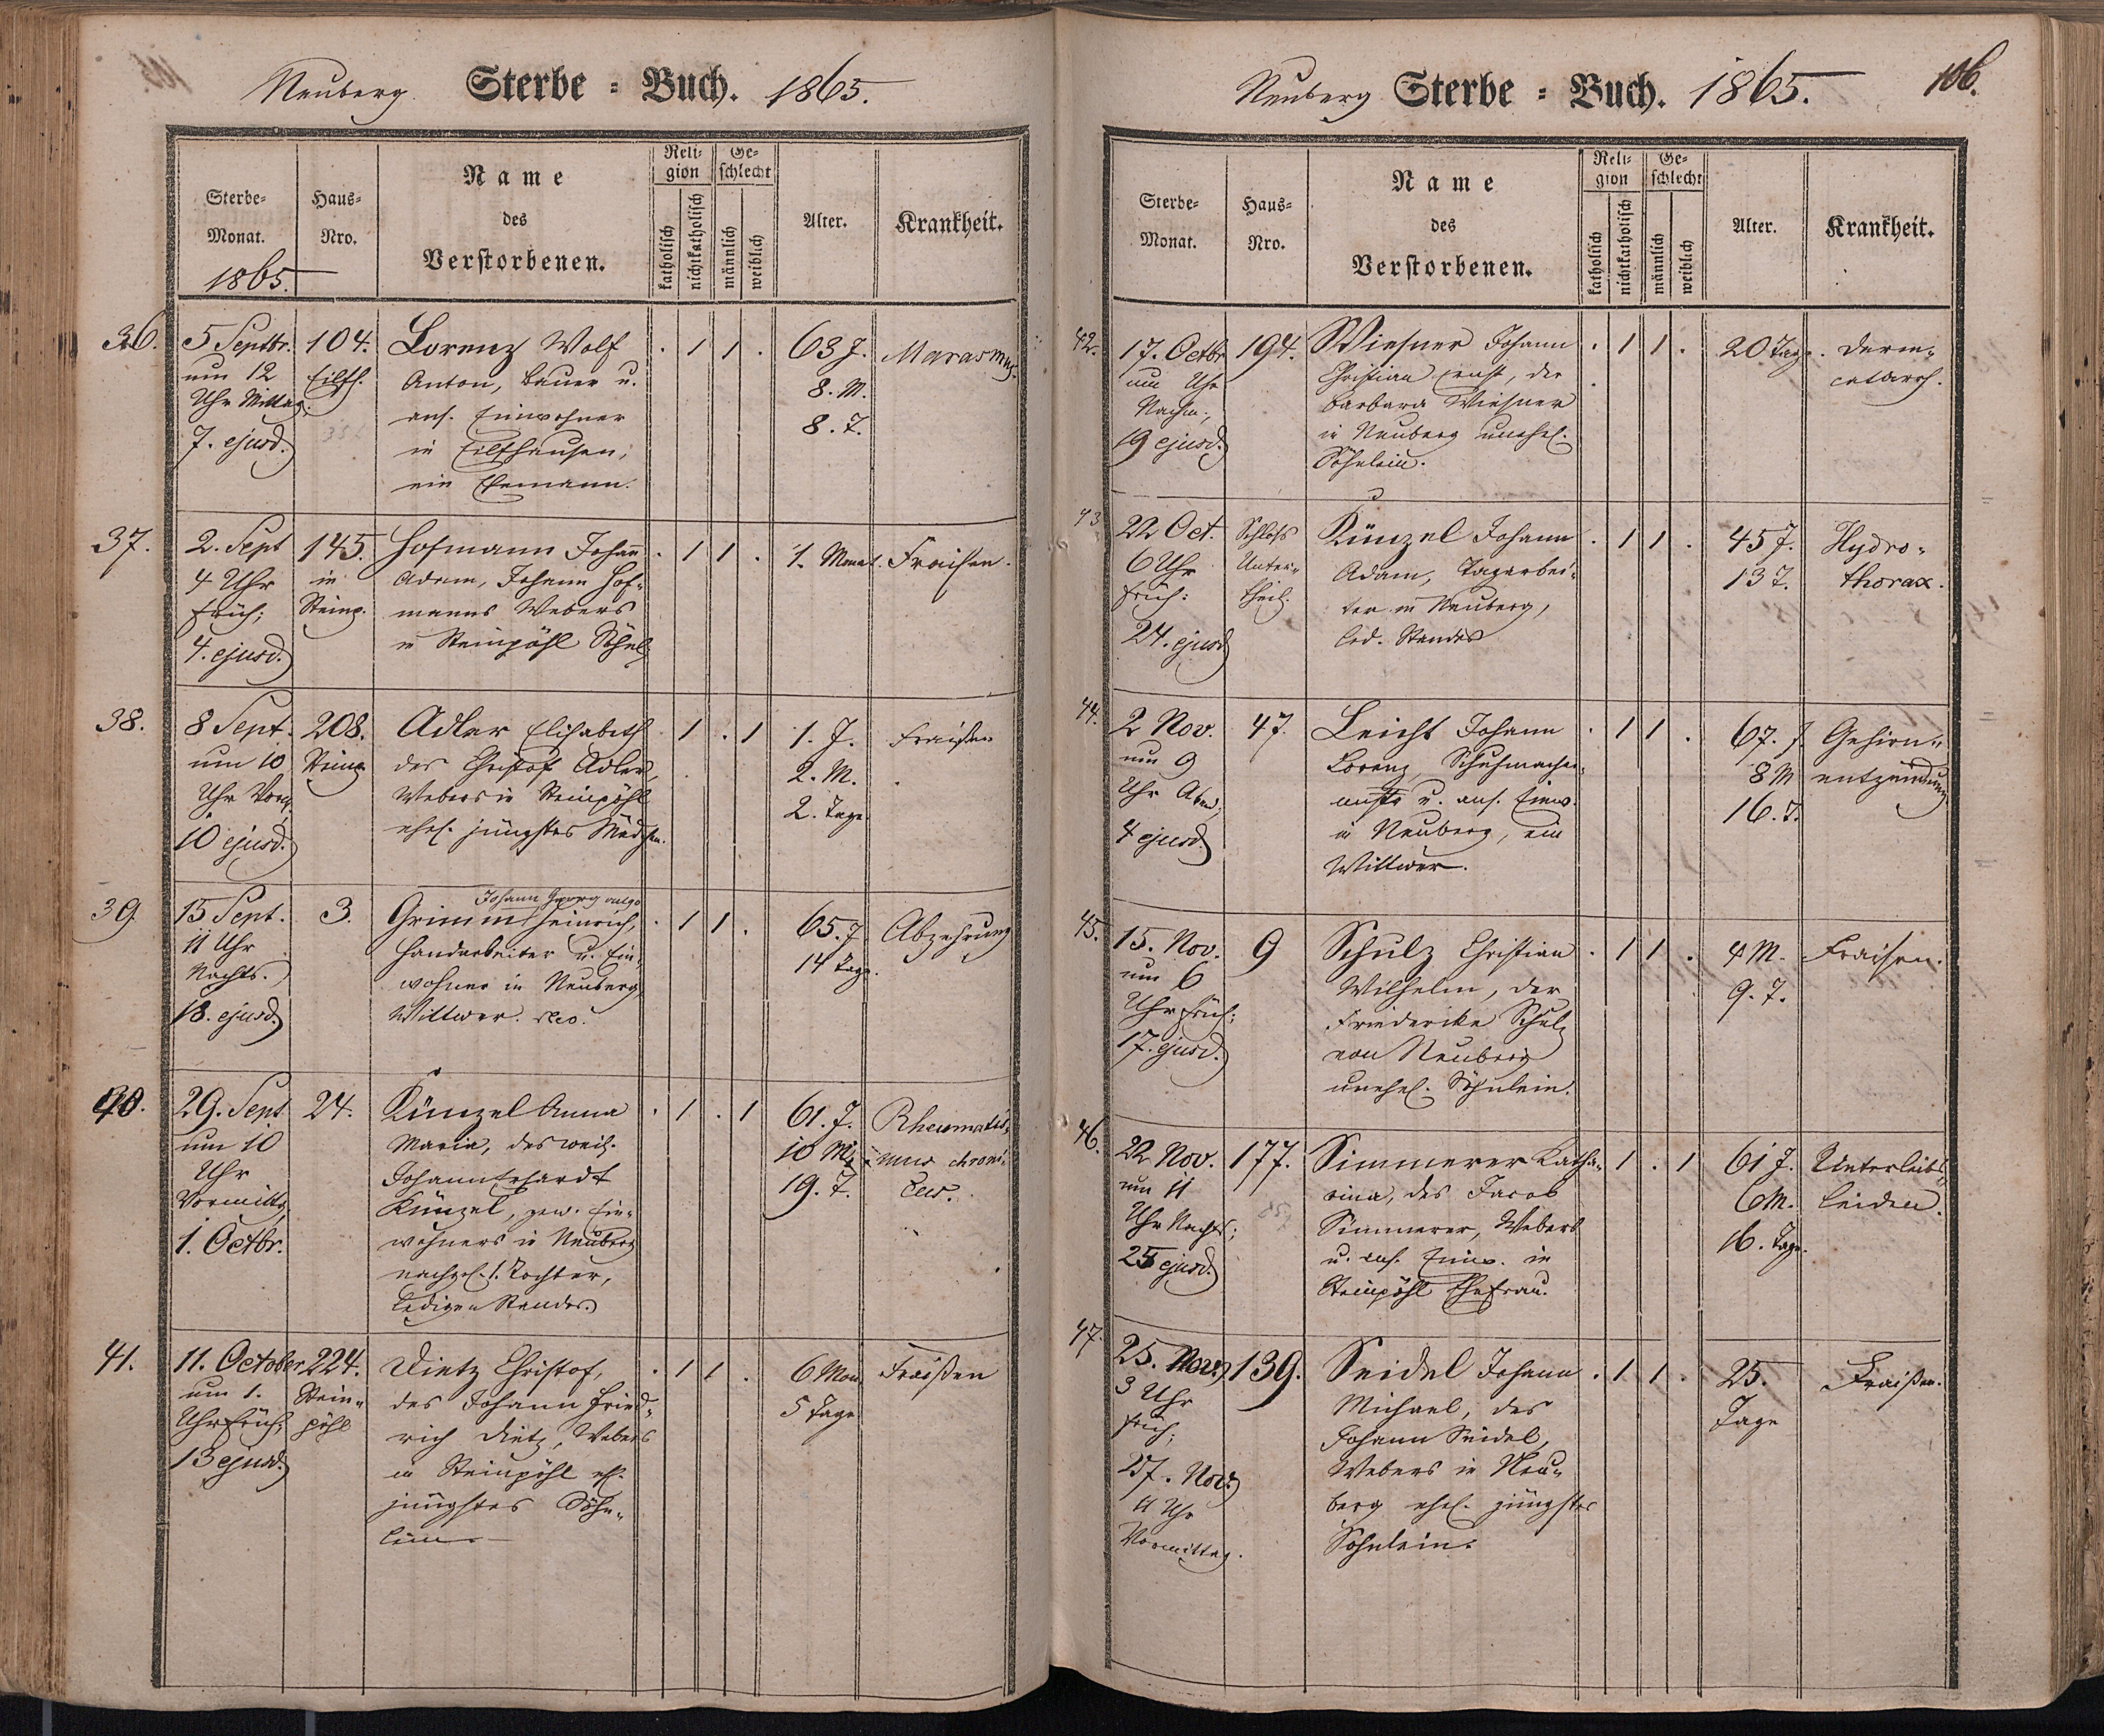 Neuberg. Sterbe = Buch. 1865.
Sterbe-
Monat.
1865.
Haus-
Nro.
Name
des
Verstorbenen.
Reli-
gion
katholisch
nichtkatholisch
Ge-
schlecht
männlich
weiblich
Alter.
Krankheit.
36.
5 Septbr.
um 12
Uhr Mittag;
7. ejusd.
104.
Eilfh.
Lorenz Wolf
Anton, Bauer u.
ans. Einwohner
in Eilfhausen,
ein Ehemann.
. 1 1 .
63 J.
8. M.
8. T.
Marasmus.
37.
2. Sept
4 Uhr
früh;
4. ejusd.
145.
in
Steinp.
Hofmann Johann
Adam, Johann Hof-
manns Webers
in Steinpöhl
. 1 1 .
1. Monat.
Fraisen.
38.
8 Sept.
um 10
Uhr Vorm.
10 ejusd.
208.
Steinp.
Adler Elisabeth
des Christof Adler,
Webers in Steinpöhl
ehel. jüngstes Mädchen.
. 1 . 1
1. J.
2. M.
2. Tage.
Fraisen
39.
15 Sept.
11 Uhr
Nachts.
18. ejusd.
3.
Johann Georg vulgo
Grimm Heinrich,
Handarbeiter u. Ein-
wohner in Neuberg,
Wittwer.
. 1 1 .
65. J
14 Tage.
Abzehrung
40.
29. Sept
um 10
Uhr
Vormittg,
1. Octbr.
24.
Künzel Anna
Maria, des weil.
Johann Erhardt
Künzel, gew. Ein-
wohners in Neuberg
nachgel. 1. Tochter,
ledigen Standes.
. 1 . 1
61. J.
10 M.
19. T.
Rheumatis-
mus chroni-
cus.
41.
11. October
um 1.
Uhr früh;
13 ejusd.
224.
Stein-
pöhl
Dietz Christof,
des Johann Fried-
rich Dietz, Webers
in Steinpöhl eh.
jüngstes Söhn-
lein.
. 1 1 .
6 Mon.
5 Tage
Fraißen
Neuberg Sterbe = Buch. 1865.
106.
Sterbe-
Monat.
Haus-
Nro.
Name
des
Verstorbenen.
Reli-
gion
katholisch
nichtkatholisch
Ge-
schlecht
männlich
weiblich
Alter.
Krankheit.
42.
17. Octbr
um Uhr
Nachm.;
19 ejusd.
194.
Wiesner Johann
Christian Ernst, der
Barbara Wiesner
in Neuberg unehel.
Söhnlein.
. 1 1 .
20 Tage.
Darm-
catarrh.
43
22 Oct.
6 Uhr
früh:
24. ejusd
Schloß
Unter-
theil.
Künzel Johann
Adam, Tagarbei-
ter in Neuberg,
led. Standes
. 1 1 .
45 J.
13 T.
Hydro-
thorax.
44.
2 Nov.
um 9
Uhr Abend;
4 ejusd.
47.
Leicht Johann
Lorenz, Schuhmacher-
mstr u. ans. Einw.
in Neuberg, ein
Wittwer.
. 1 1 .
67. J
8 M
16. T.
Gehirn-
entzündung
45.
15. Nov.
um 6
Uhr früh;
17. ejusd.
9
Schulz Christian
Wilhelm, der
Friedericke Schulz
von Neuberg
unehel. Söhnlein.
. 1 1 .
4 M.
9. T.
Fraisen.
46.
22 Nov.
um 11
Uhr Nachts;
25 ejusd.
177.
Simmerer Katha-
rina, des Jacob
Simmerer, Webers
u. ans. Einw. in
Steinpöhl Ehefrau.
1 . 1
61 J.
6 M.
16. Tage.
Unterleibs-
leiden.
47.
25. Nov.
3 Uhr
früh;
27. Nov.
11 Uhr
Vormittag.
139.
Seidel Johann
Michael, des
Johann Seidel,
Webers in Neu-
berg ehel. jüngstes
Söhnlein.
. 1 1 .
25.
Tage
Fraißen.